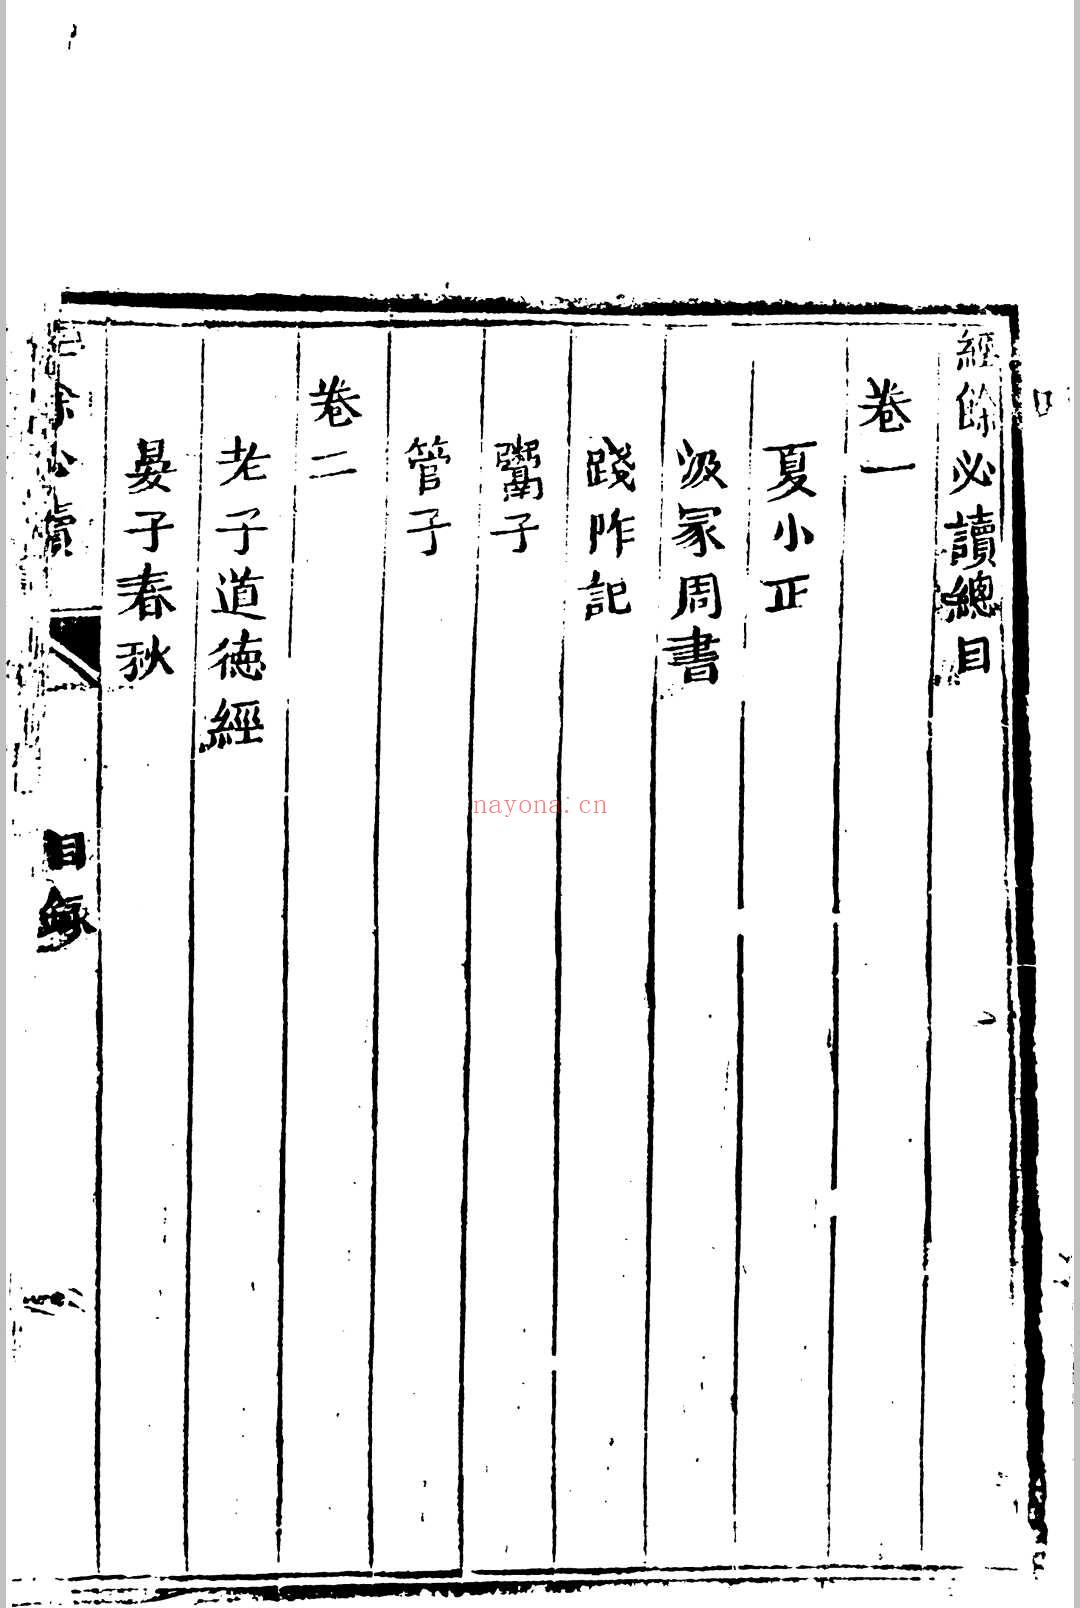 經餘必讀總目
卷一
夏小正
汲冢周書
踐阼記
鬻子
管子
卷二
老子道德經
晏子春秋
餘必讀
目錄
nayona.cn